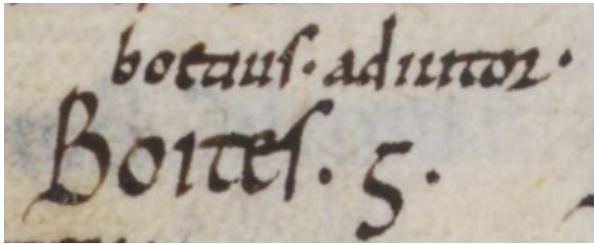 boetius · adiutor ·
Boites · ⁊ ·